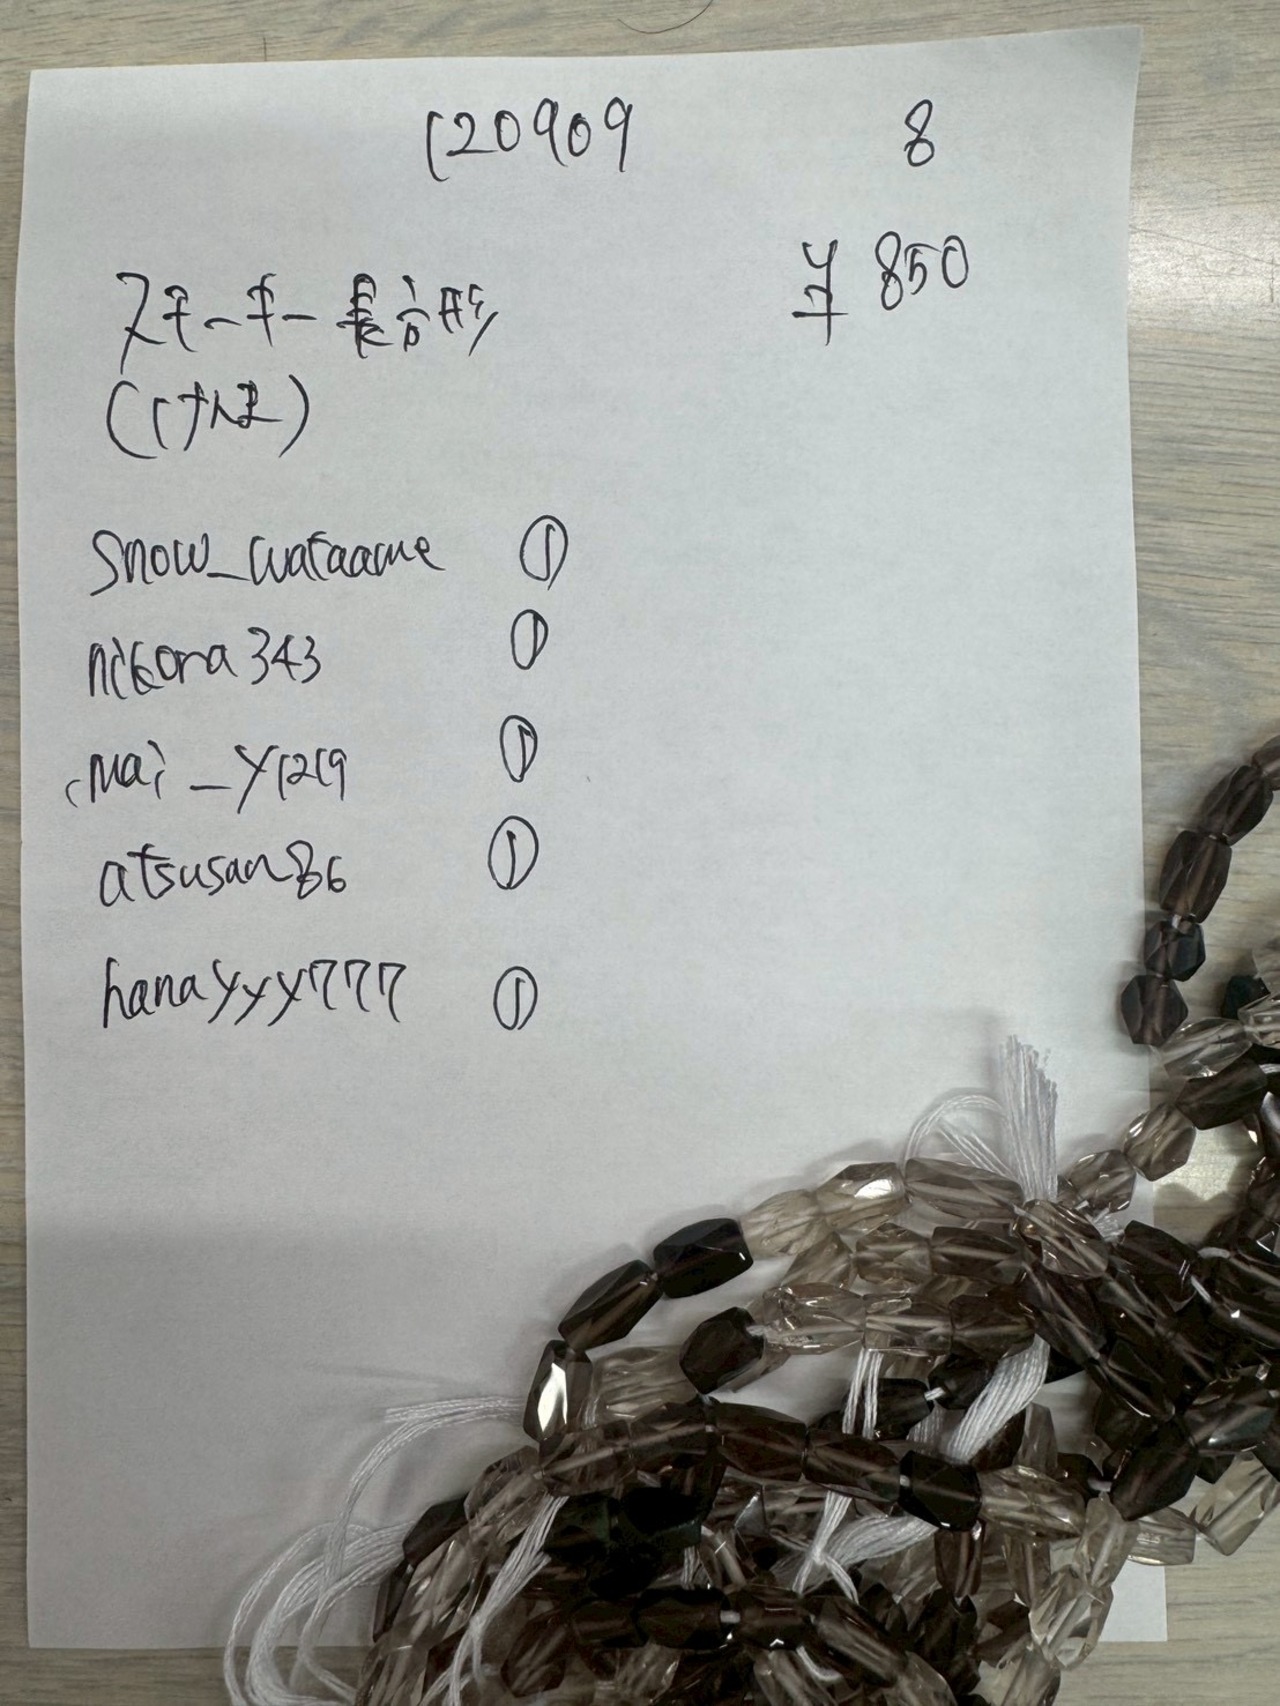 120909 8
¥ 850
スモーキー長方形
snow_wataame ①
nikona343 ①
mai_y1219 ①
atsusan86 ①
hanayyy777 ①